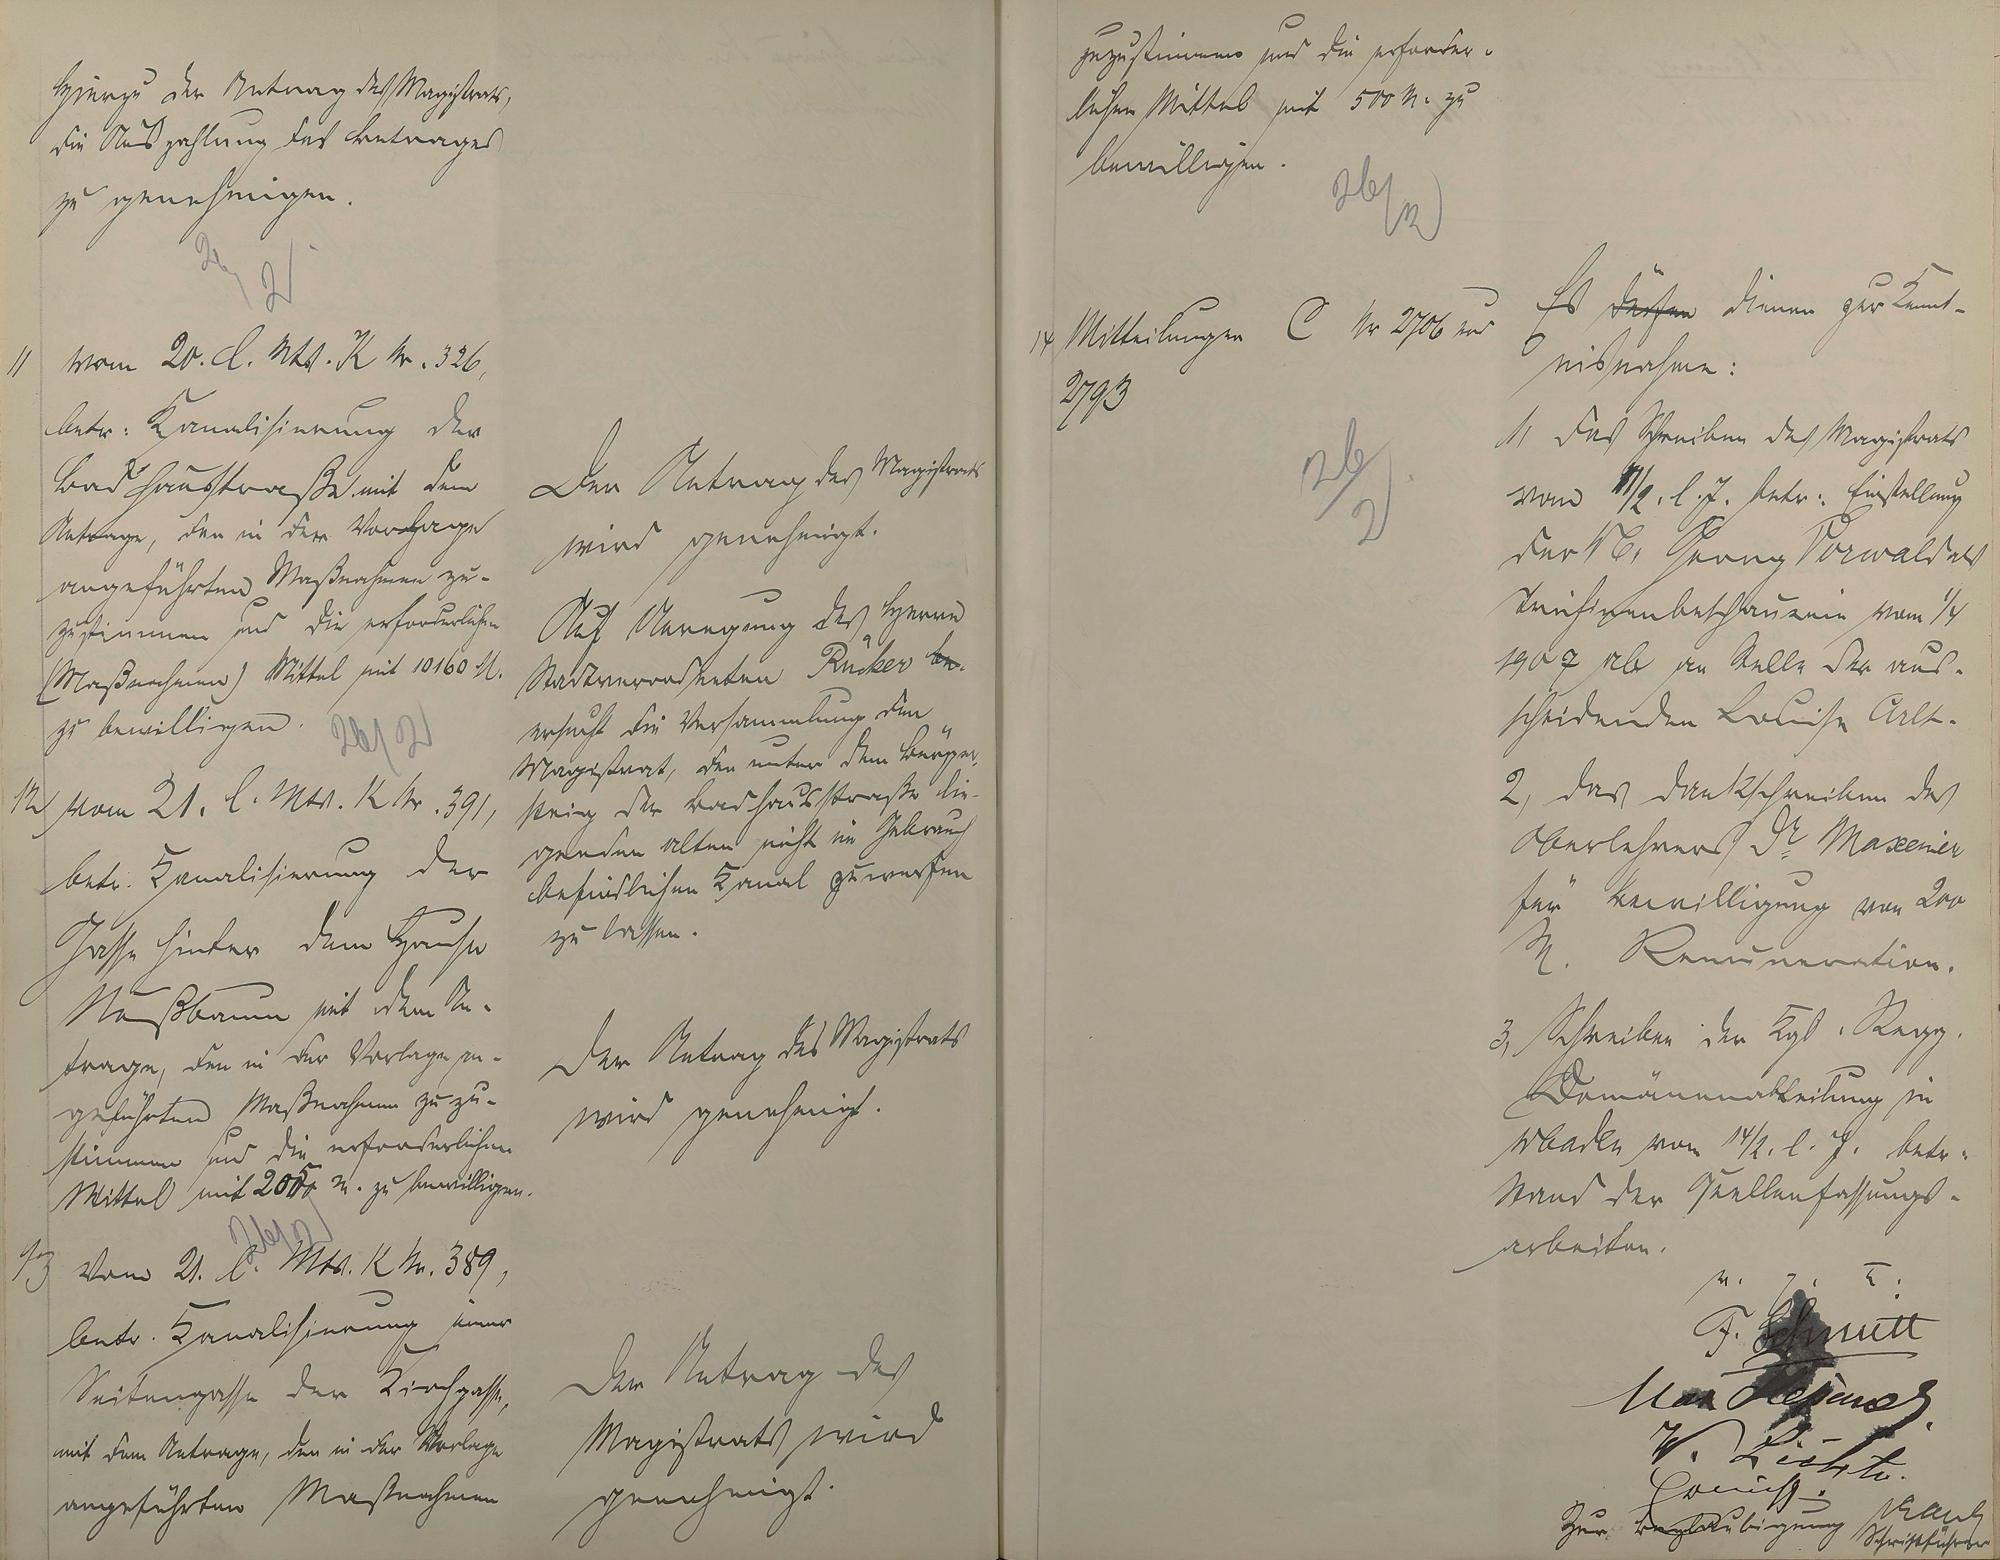 Hierzu der Antrag des Magistrats,
die Auszahlung des Betrages
zu genehmigen.
26/2
11 vom 20. l. Mts. K Nr. 326,
betr. Kanalisierung der
Badhausstraße mit dem
Antrage, den in der Vorlage
angeführten Maßnahmen zu-
zustimmen und die erforderlichen
(Maßnahmen) Mittel mit 10160 M.
zu bewilligen.
26/2
12 vom 21. l. Mts. K Nr. 391,
betr. Kanalisierung der
Gasse hinter dem Hause
Nußbaum mit dem An-
trage, den in der Vorlage an-
geführten Maßnahmen zuzu-
stimmen und die erforderlichen
Mittel mit M. zu bewilligen.
26/2
13 Vom 21. l. Mts. K Nr. 389,
betr. Kanalisierung einer
Seitengasse der Kirchgasse,
mit dem Antrage, den in der Vorlage
angeführten Maßnahmen
Der Antrag des Magistrats
wird genehmigt.
Auf Anregung des Herrn
Stadtverordneten Rücker
ersucht die Versammlung den
Magistrat, den unter dem Bürger-
steig der Badhausstraße lie-
genden alten nicht im Gebrauch
befindlichen Kanal zuwerfen
zu lassen.
Der Antrag des Magistrats
wird genehmigt.
Der Antrag des
Magistrats wird
genehmigt.
zuzustimmen und die erforder-
lichen Mittel mit 500 M. zu
bewilligen.
26/2
14 Mitteilungen C Nr 2706 und
2793
26/2
Es dienen zur Kennt-
nisnahme:
1, das Schreiben des Magistrats
vom l. J. betr. Einstellung
der Georg Vorwald als
Trichinenbeschauerin vom 1/4
1907 ab an Stelle der aus-
scheidenden Louise Arlt.
2, das Dankschreiben des
Oberlehrers Dr. Maxeiner
für Bewilligung von 200
M. Remuneration.
3, Schreiben der Kgl. Regg.
Domänenabteilung in
Wbaden vom 14/2. l. J. betr.
Stand der Quellenfassungs-
arbeiten.
F. Schmitt
Zur Beglaubigung
Schriftführer